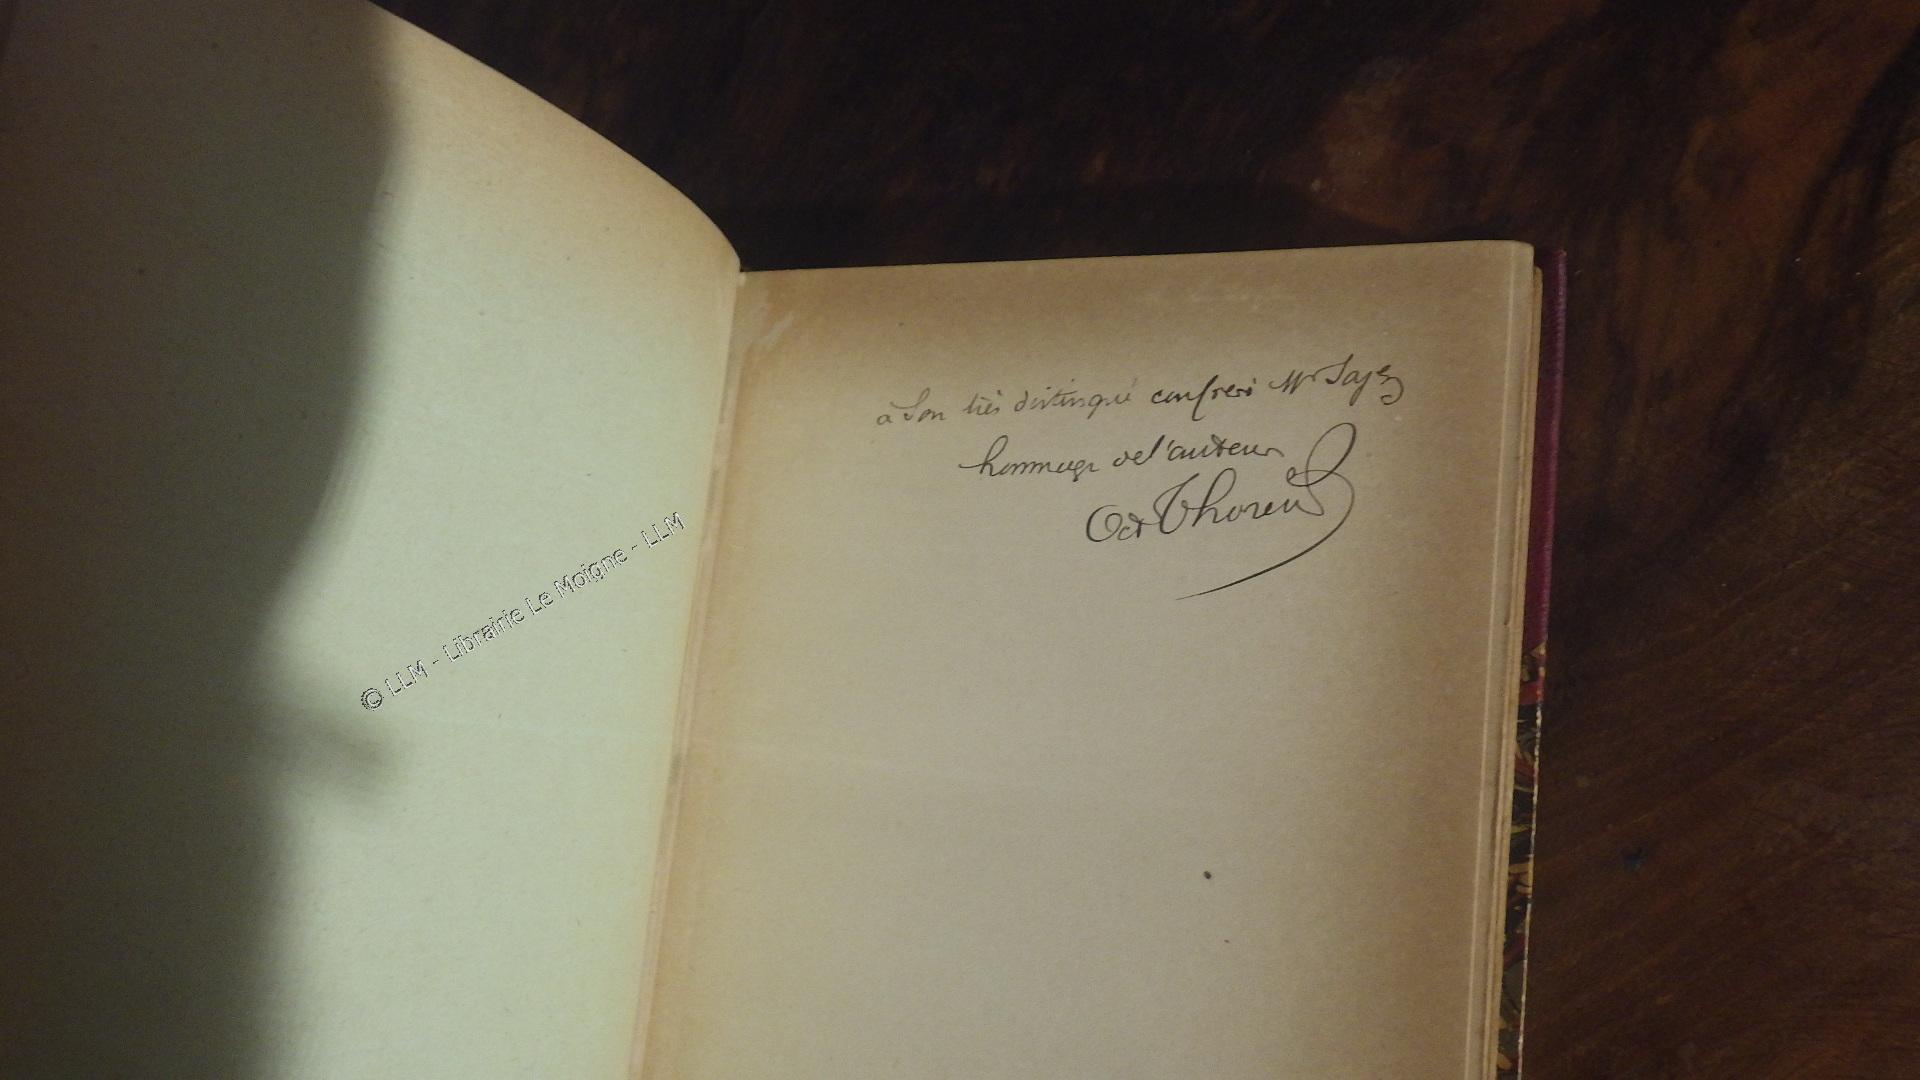 à son très distingué confrère Mr
hommage de l'auteur
Oct Thoreu
© LLM - Librairie Le Moigne - LLM